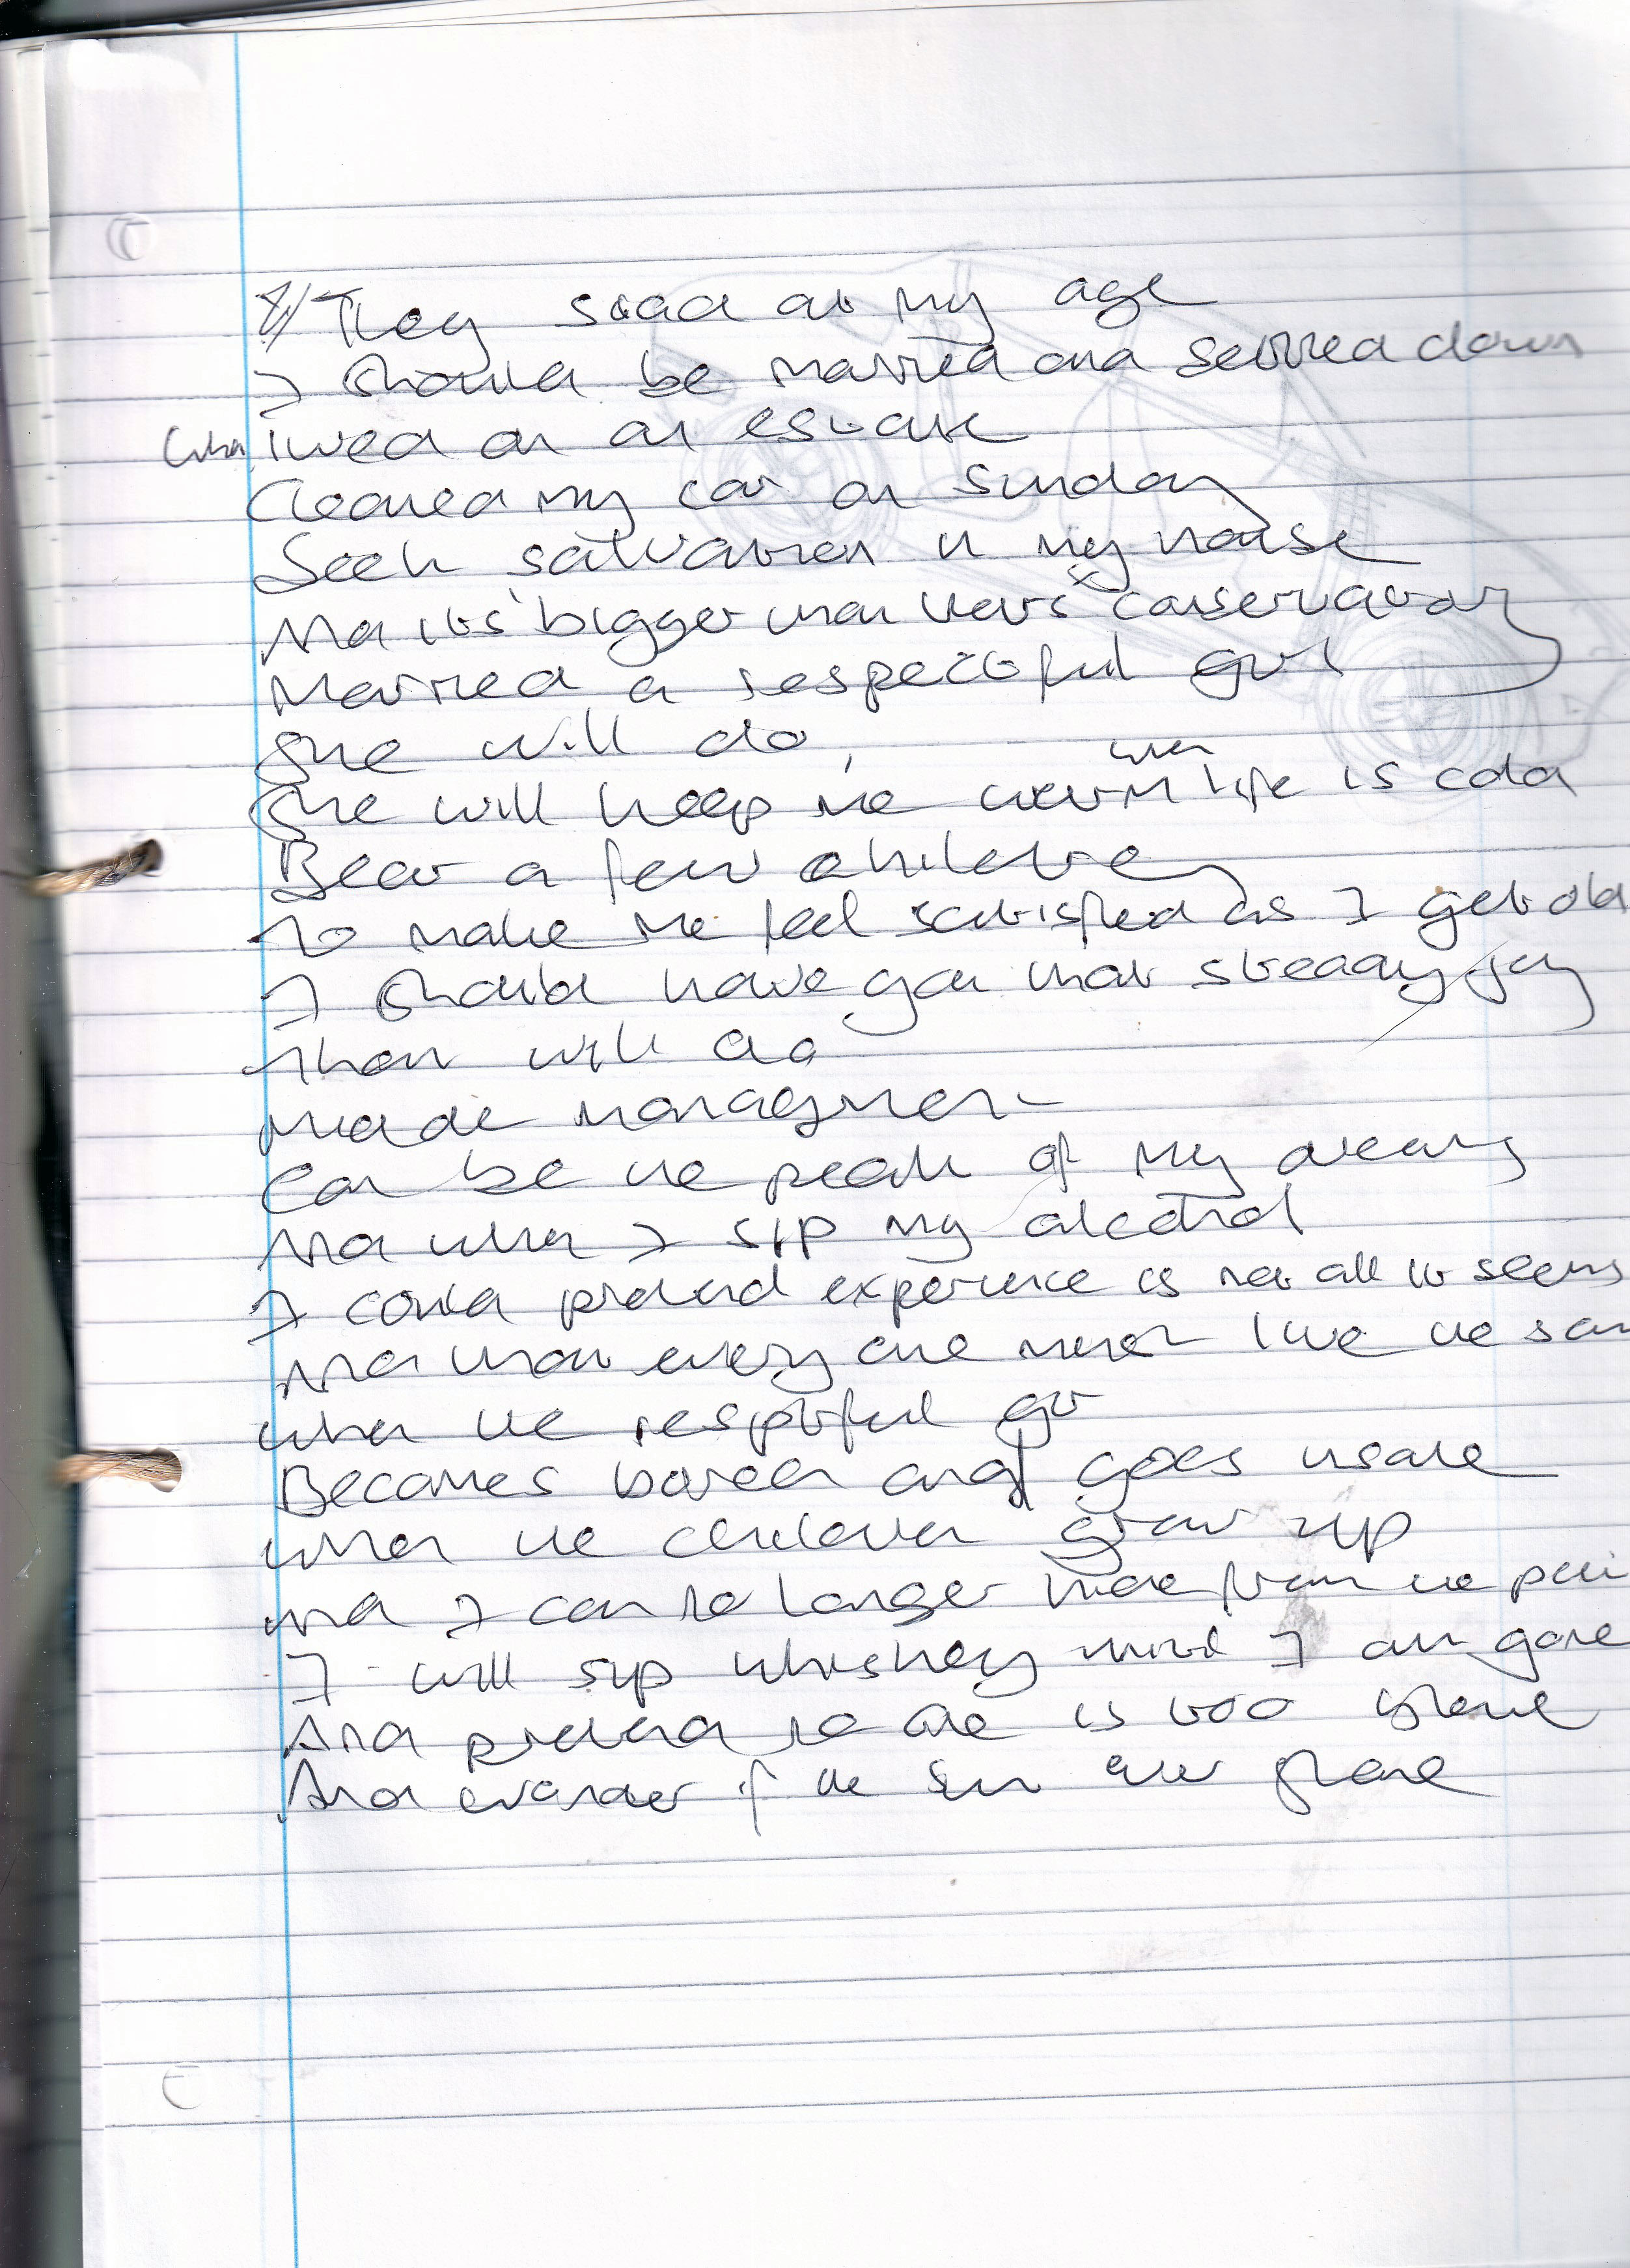 They said at my age
I should be married and settled down
lived on an estate
Cleaned my car on Sunday
Seek salvation in my house
And its bigger than hers conservatory
Married a respectful girl
She will do,
when
She will keep me warm life is cold
Bear a few children
to make me feel satisfied as I get old
I should have got that steady joy
that will do
made managment
Can be the peak of my dreams
And when I sip my alcohol
I could pretend experience is not all it seems
And that every one must live the sam
when the respectful girl
Becomes bored and goes insane
when the children grow up
And I can no longer hide from the pain
I will sip whiskey until I am gone
And pretend no one is too blame
And wonder if the sun ever shone